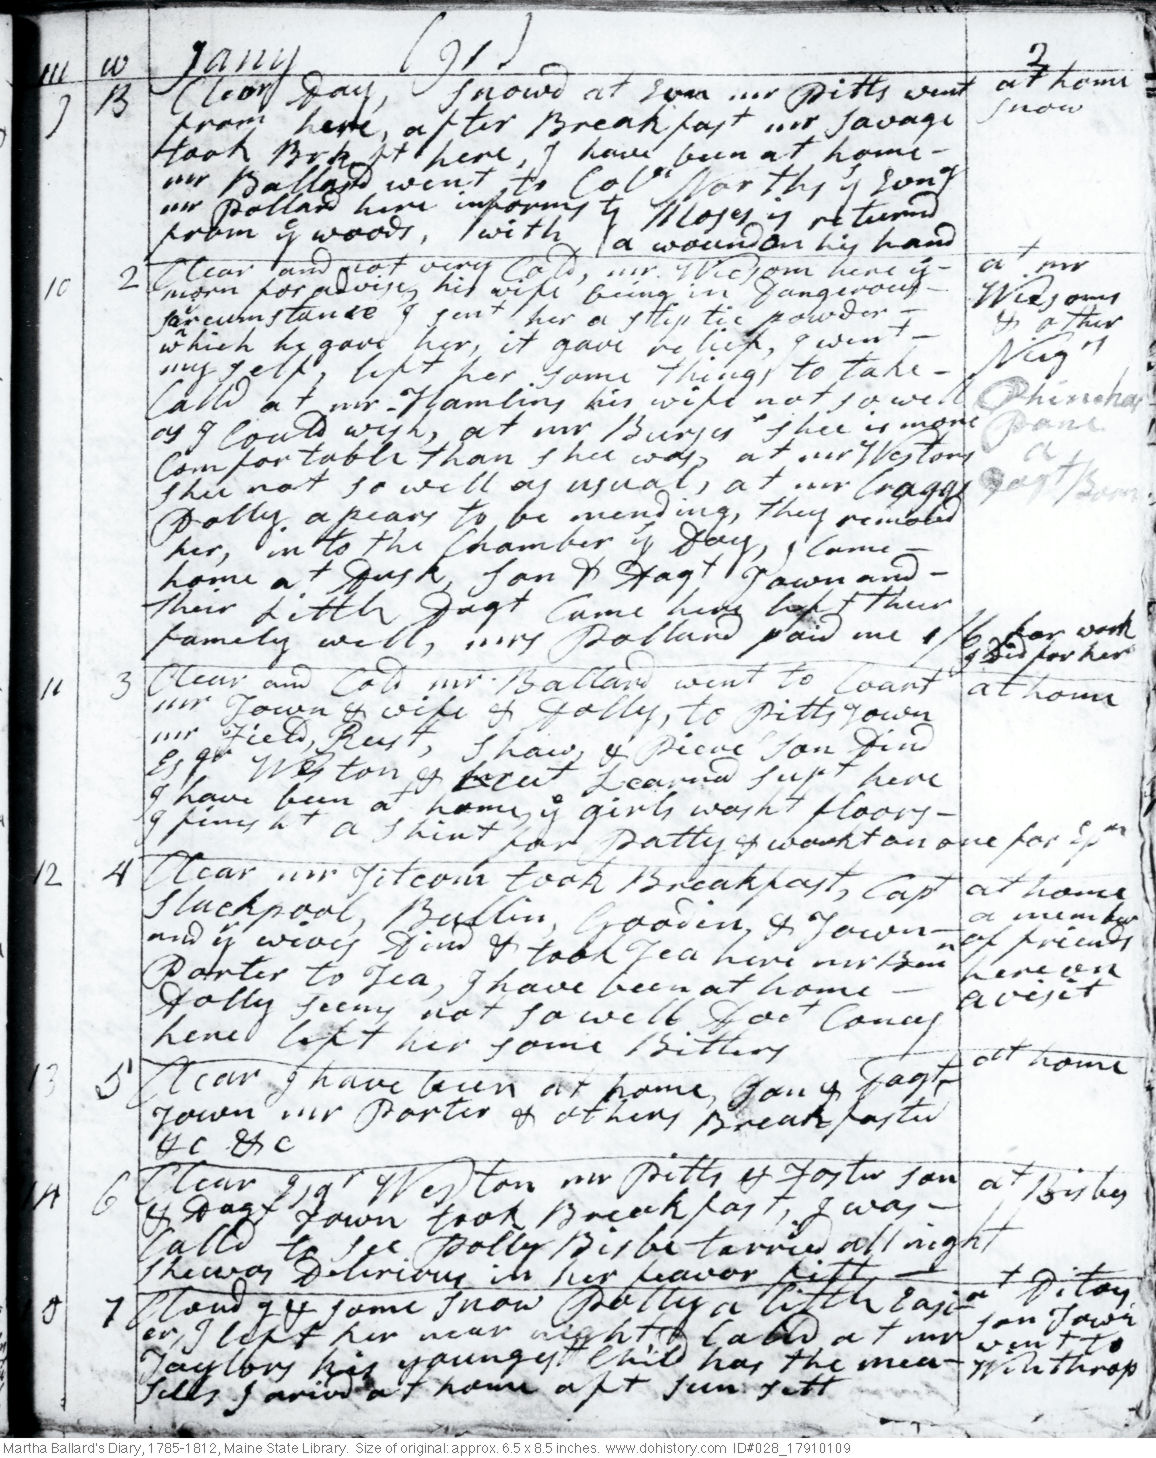 m w Jany (91) 2
9 B Clear Day, Snowd at Evn mr Pitts went at home
from here, after Breakfast mr Savage snow
took Brkft here, I have been at home-
mr Ballard went to Coln Norths ys Evng
mr Pollard here informs ys Moses is returnd
from ye woods, with a wound on his hand
10 2 Clear and not very Cold, mr Widsom here ys- at mr
morn for advise, his wife being in Dangerous- Widsoms
sircumstance I sent her a stiptic powder- & other
which he gave her, it gave relief, I went- Neigrs
my self, left her some things to take-
Calld at mr Hamlins his wife not so well Phinehas
as I Could wish, at mr Burses shee is more Pain
Comfortable than shee was, at mr Westons a
shee not so well as usual, at mr Craggs Dagt Born
Dolly apears to be mending, they removd
her, in to the Chamber ys Day, I Came-
home at Dusk, Son & Dagt Town and-
their Little Dagt Came here left their
famely well, mrs Pollard paid me 1/6 for work
I Did for her
11 3 Clear and Cold mr Ballard went to Coart at home
mr Town & wife & Dolly, to Pitts Town
mr Field, Rust, Shaw, & Pierce son Dind
Esqr Weston & Learnd supt here
I have been at home, ye girls washt floors-
I finisht a Shirt for Patty & workt on one for Epm
12 4 Clear mr Titcom took Breakfast, Capt at home
Stackpool, Burtin, Gooden, & Town- a member
and ye wives Dind & took Tea here mr Benn of friends
Porter to Tea, I have been at home- here on
Dolly seems not so well Doct Coney a visit
here left her some Bitters
13 5 Clear I have been at home, Son & Dagt- at home
Town mr Porter & others Breakfasted
&c &c
14 6 Clear Esqr Weston mr Pitts & Foster son at Bisbys
& Dagt Town took Breakfast, I was-
Calld to see Polly Bisbe tarried all night
shee was Delirious in her feavor fitt
15 7 Cloudy & some Snow Polly a littl Easi- at Ditoy
er, I left her near night Calld at mr son Town
Taylors his youngest Child has the mea- went to
sells I arivd at home aft sun sett Winthrop
Martha Ballard's Diary, 1785-1812, Maine State Library. Size of original: approx. 6.5 x 8.5 inches. www.dohistory.com ID#028_17910109